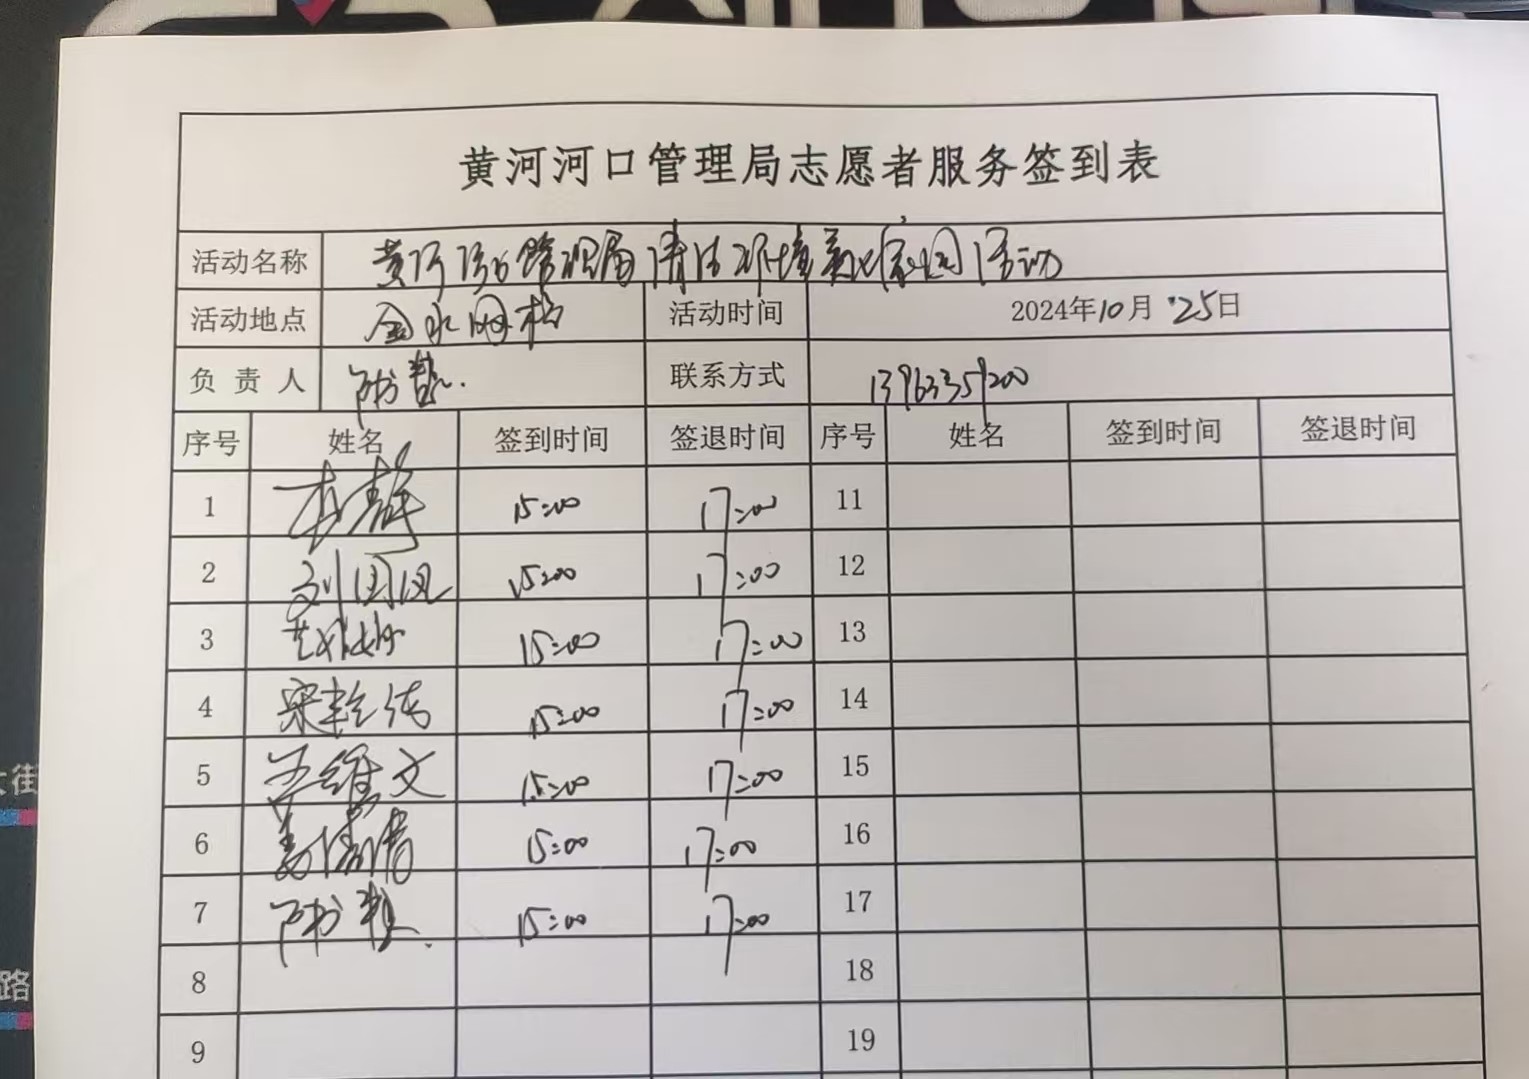 黄河河口管理局志愿者服务签到表
活动名称 黄河河口管理局清洁环境美化家园活动
活动地点 金水网格 活动时间 2024年10月25日
负责人 联系方式 13963359200
序号 姓名 签到时间 签退时间 序号 姓名 签到时间 签退时间
1 李静 15:00 17:00 11
2 刘国凤 15:00 17:00 12
3 15:00 17:00 13
4 宋 15:00 17:00 14
5 王维文 15:00 17:00 15
6 15:00 17:00 16
7 15:00 17:00 17
8 18
9 19
大街
路